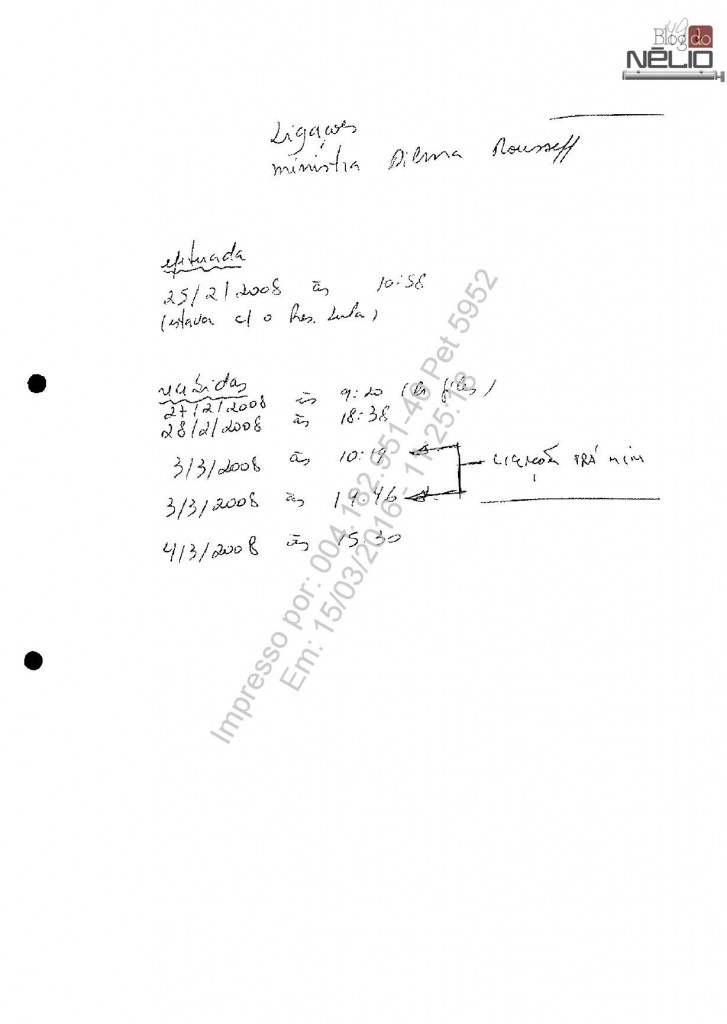 49
Blog do
NÉLIO
Ligações
ministra Dilma Rousseff
efetuada
25/2/2008 às 10:58
(estava c/ o Pres. Lula)
recebidas
27/2/2008 às 9:20
28/2/2008 às 18:38
3/3/2008 às 10:19
LIGAÇÕES PRÁ MIM
3/3/2008 às 19:46
4/3/2008 às 15:30
Impresso por: 004.182.951-40 Pet 5952
Em: 15/03/2016 - 11:25:18